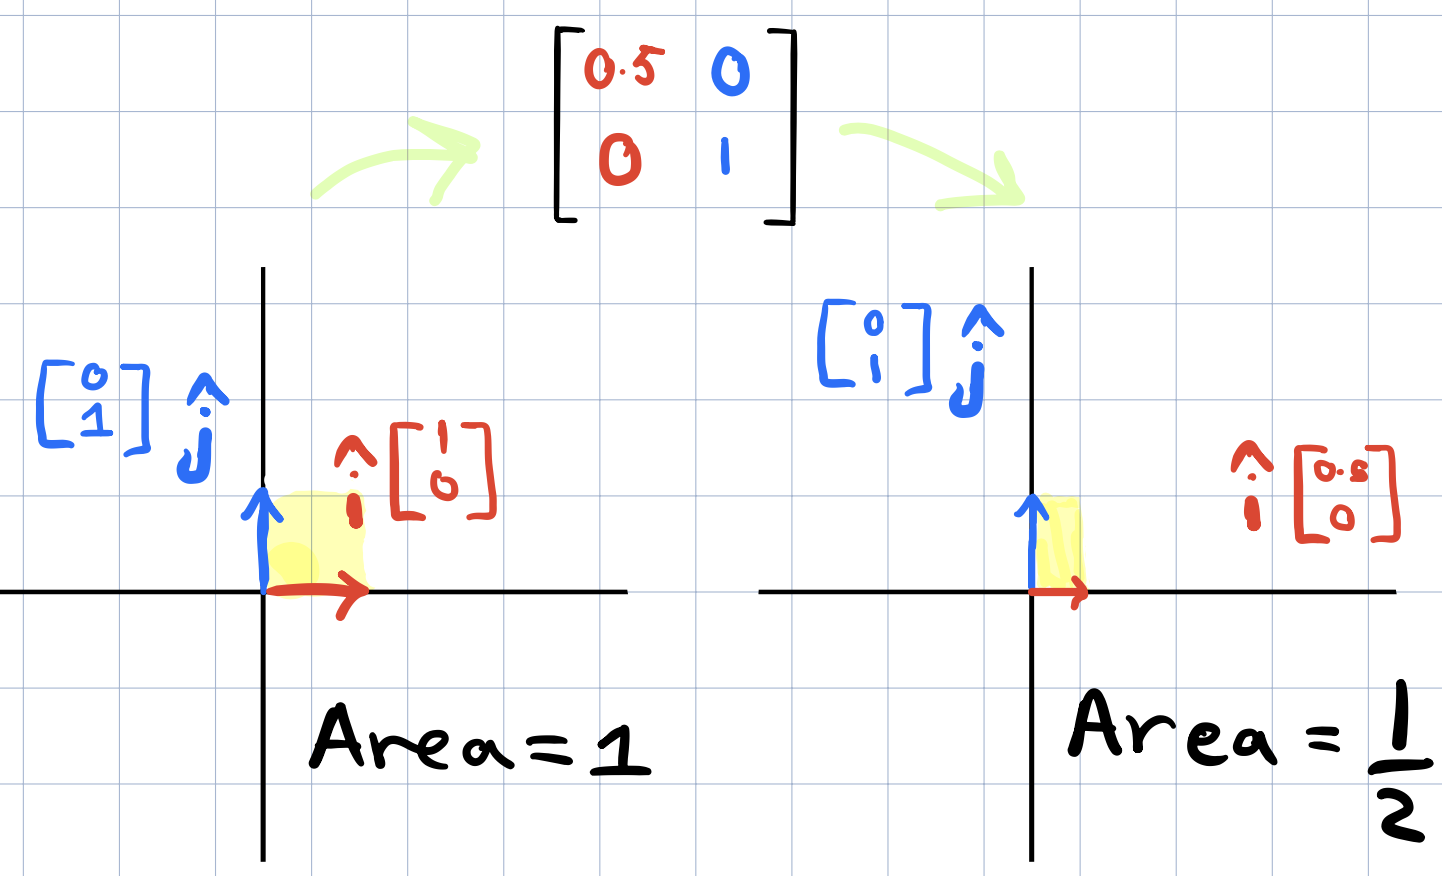 0.5 0
0 1
[0
1] ĵ
î [1
0]
Area = 1
[0
1] ĵ
î [0.5
0]
Area = 1/2